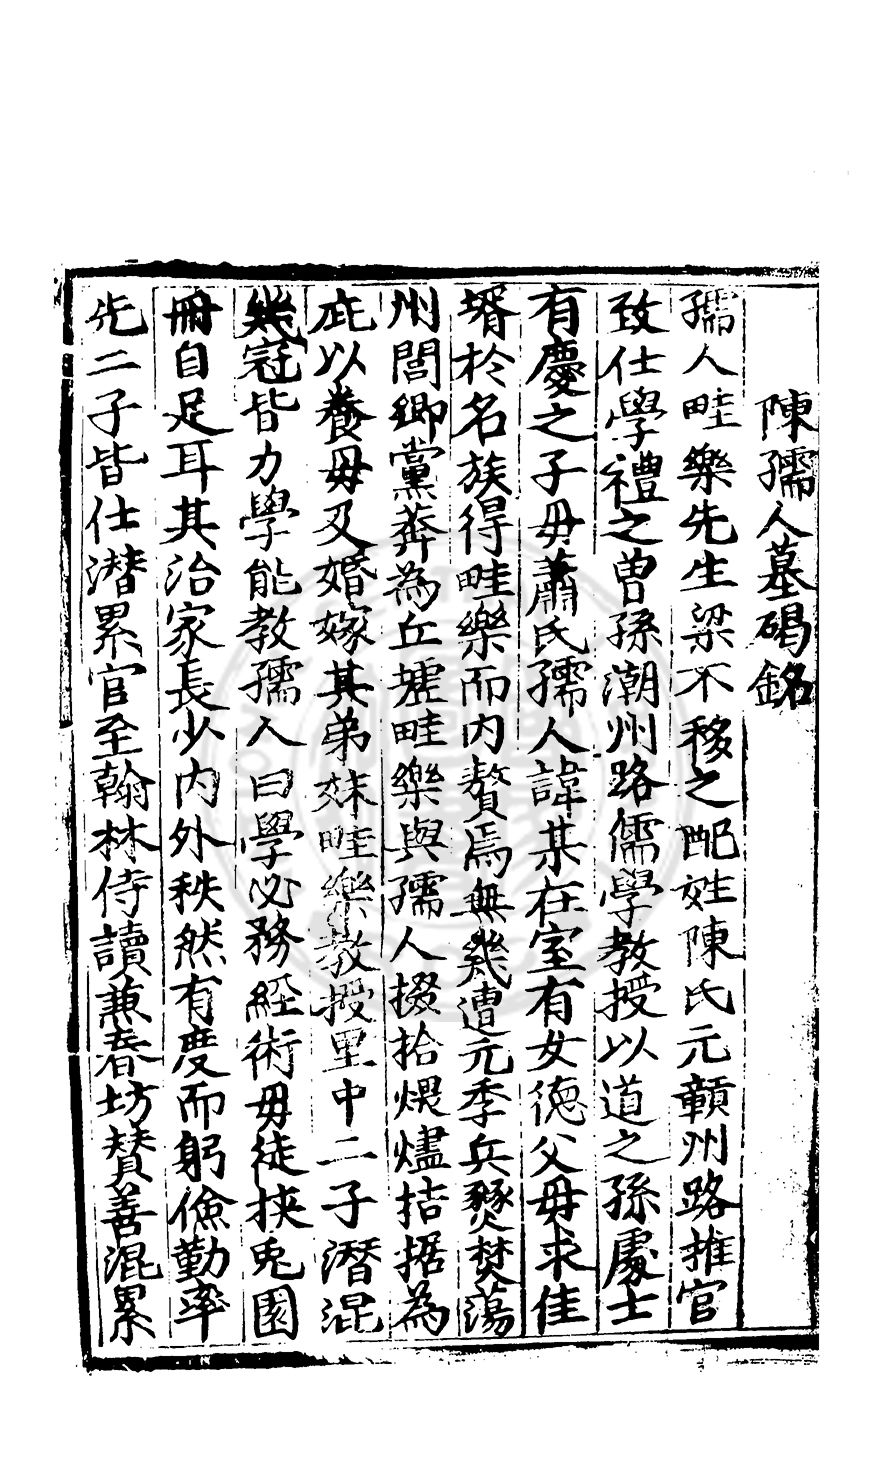 陳孺人墓碣銘
孺人畦樂先生梁不移之配姓陳氏元贛州路推官
致仕學禮之曽孫潮州路儒學教授以道之孫處士
有慶之子毋蕭氏孺人諱某在室有女德父毋求佳
壻於名族得畦樂而內贅焉無幾遭元季兵燹焚蕩
州閭鄉黨莽為丘墟畦樂與孺人掇拾煨燼拮据為
庇以養毋及婚嫁其弟妹畦樂教授里中二子潛混
幾冠皆力學能教孺人曰學必務經術毋徒挾兎園
冊自足耳其治家長少內外秩然有度而躬儉勤率
先二子皆仕潛累官至翰林侍讀兼春坊賛善混累